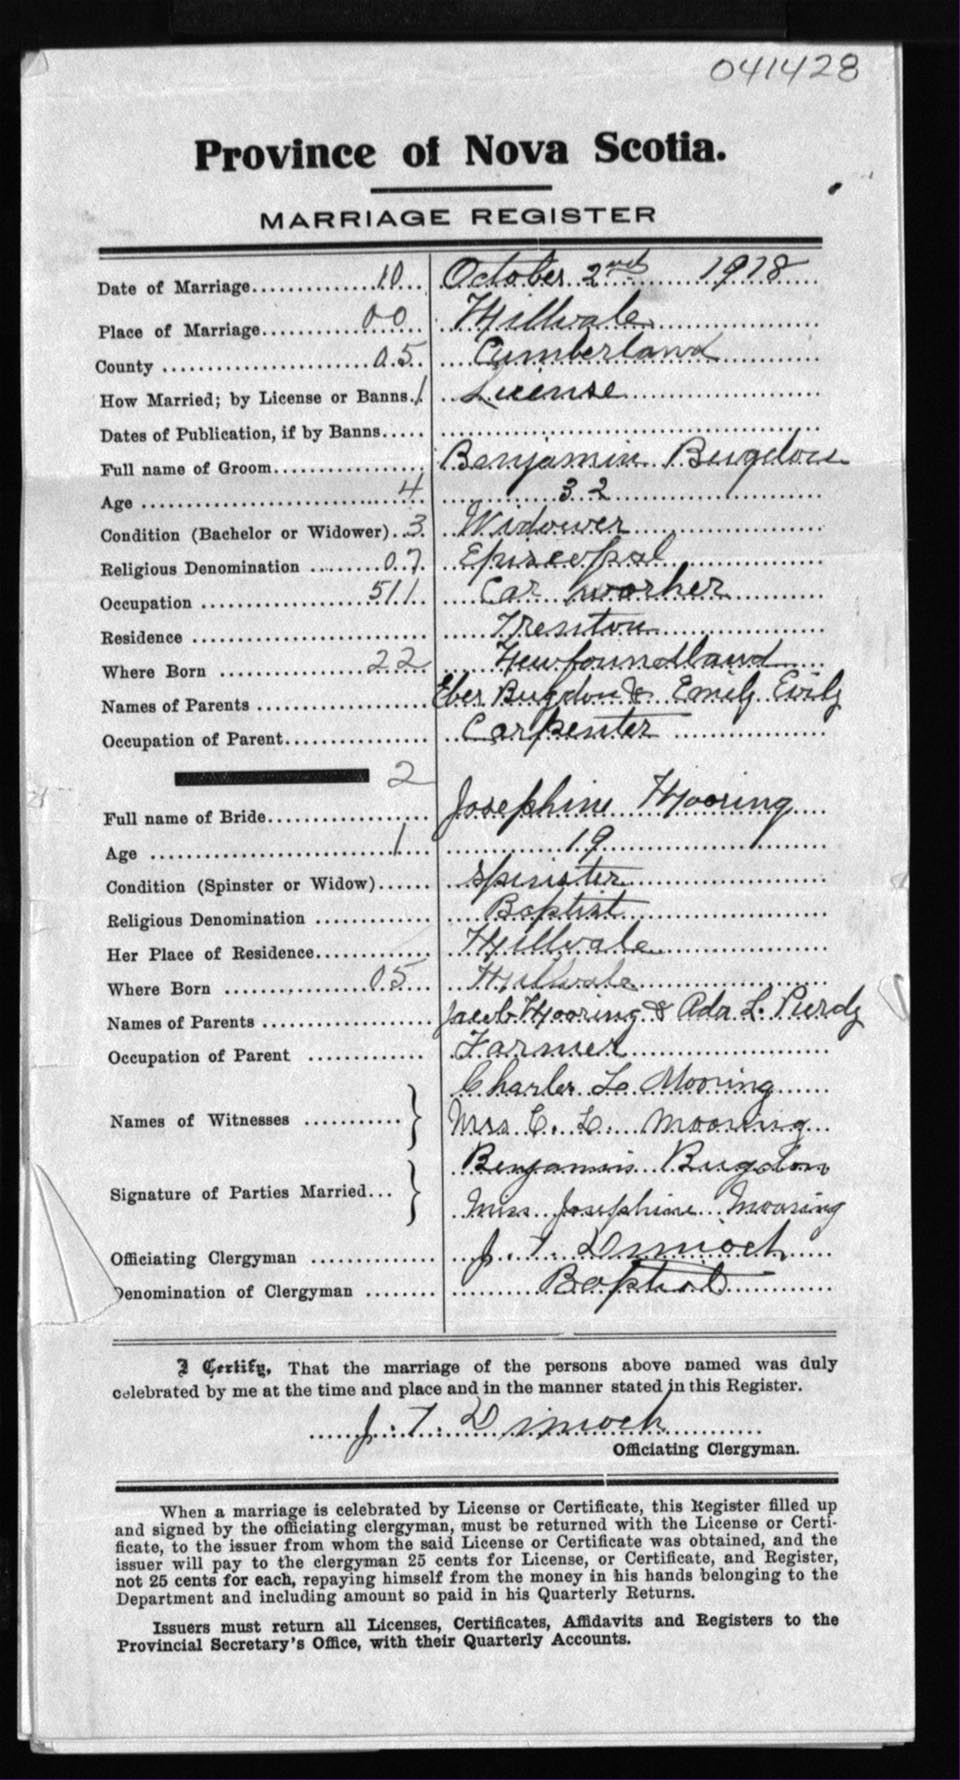 041428
Province of Nova Scotia.
MARRIAGE REGISTER
Date of Marriage..............10... October 2nd 1918
Place of Marriage..............00 Millvale
County ........................05 Cumberland
How Married; by License or Banns. 1 License
Dates of Publication, if by Banns.....
Full name of Groom................ Benjamin Bugdon
Age ..............................4 32
Condition (Bachelor or Widower)..3. Widower
Religious Denomination ........07. Episcopal
Occupation ..................511. Car worker
Residence ........................... Trenton
Where Born ..................22 Newfoundland
Names of Parents .................. Eber Bugdon & Emily
Occupation of Parent................ Carpenter
2
Full name of Bride.................. Josephine Mooring
Age ............................1... 19
Condition (Spinster or Widow)...... Spinster
Religious Denomination ............. Baptist
Her Place of Residence............. Millvale
Where Born ..................05 Millvale
Names of Parents .................. Jacob Mooring & Ada L. Purdy
Occupation of Parent ............. Farmer
Charles L. Mooring
Names of Witnesses ........... Mrs. C. L. Mooring
Benjamin Bugdon
Signature of Parties Married... Miss Josephine Mooring
Officiating Clergyman .............. J. T. Dimock
Denomination of Clergyman ........ Baptist
I Certify, That the marriage of the persons above named was duly
celebrated by me at the time and place and in the manner stated in this Register.
J. T. Dimock
Officiating Clergyman.
When a marriage is celebrated by License or Certificate, this Register filled up
and signed by the officiating clergyman, must be returned with the License or Certi-
ficate, to the issuer from whom the said License or Certificate was obtained, and the
issuer will pay to the clergyman 25 cents for License, or Certificate, and Register,
not 25 cents for each, repaying himself from the money in his hands belonging to the
Department and including amount so paid in his Quarterly Returns.
Issuers must return all Licenses, Certificates, Affidavits and Registers to the
Provincial Secretary's Office, with their Quarterly Accounts.